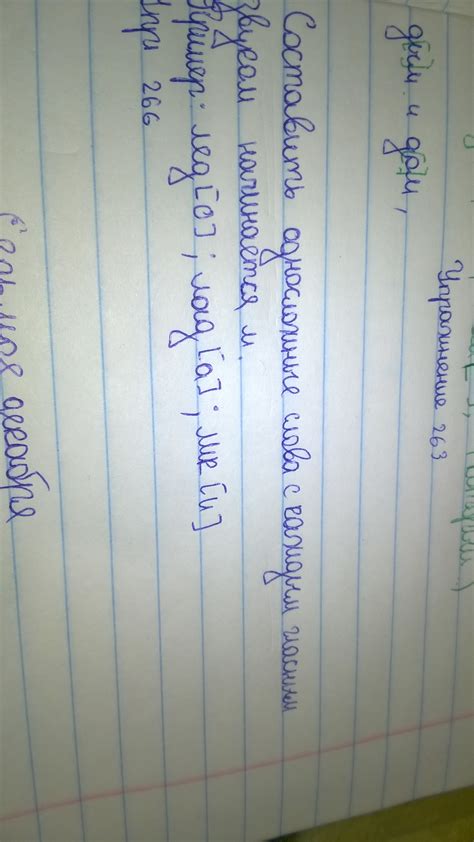 дым и дом,
Упражнение 263
Составить односложные слова с каждым гласным
звукам начинается м.
Пример: лед [о]; лад [а]; мк [и]
Упр 266
декабря